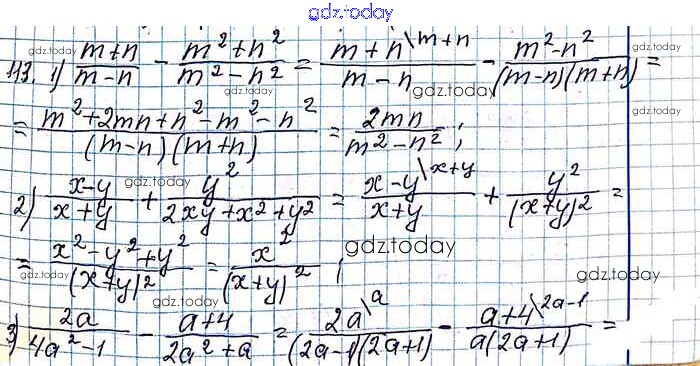 gdz.today
113. 1) (m+n)/(m-n) - (m²+n²)/(m²-n²) = (m+n\m+n)/(m-n) - (m²-n²)/((m-n)(m+n)) =
= (m²+2mn+n²-m²-n²)/((m-n)(m+n)) = 2mn/(m²-n²) ;
2) (x-y)/(x+y) + y²/(2xy+x²+y²) = (x-y\x+y)/(x+y) + y²/(x+y)² =
= (x²-y²+y²)/(x+y)² = x²/(x+y)² ;
3) 2a/(4a²-1) - (a+4)/(2a²+a) = 2a\a/((2a-1)(2a+1)) - (a+4\2a-1)/(a(2a+1)) =
gdz.today
gdz.today
gdz.today
gdz.today
gdz.today
gdz.today
gdz.today
gdz.today
gdz.today
gdz.today
gdz.today
gdz.today